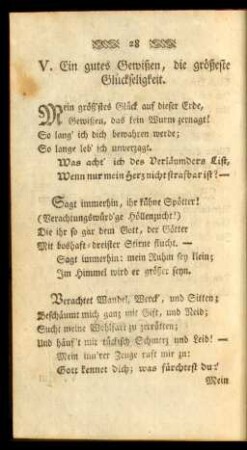 28
V. Ein gutes Gewißen, die größeste
Glückseligkeit.
Mein größ'stes Glück auf dieser Erde,
Gewißen, das kein Wurm zernagt!
So lang' ich dich bewahren werde;
So lange leb' ich unverzagt.
Was acht' ich des Verläumders List,
Wenn nur mein Herz nicht strafbar ist? —
Sagt immerhin, ihr kühne Spötter!
(Verachtungswürd'ge Höllenzucht!)
Die ihr so gar dem Gott, der Götter
Mit boshaft-dreister Stirne flucht. —
Sagt immerhin: mein Ruhm sey klein;
Im Himmel wird er größer seyn.
Verachtet Wandel, Werck', und Sitten;
Beschäumt mich ganz mit Gift, und Neid;
Sucht meine Wohlfart zu zerrütten;
Und häuf't mir tückisch Schmerz und Leid! —
Mein inn'rer Zeuge ruft mir zu:
Gott kennet dich; was fürchtest du?
Mein